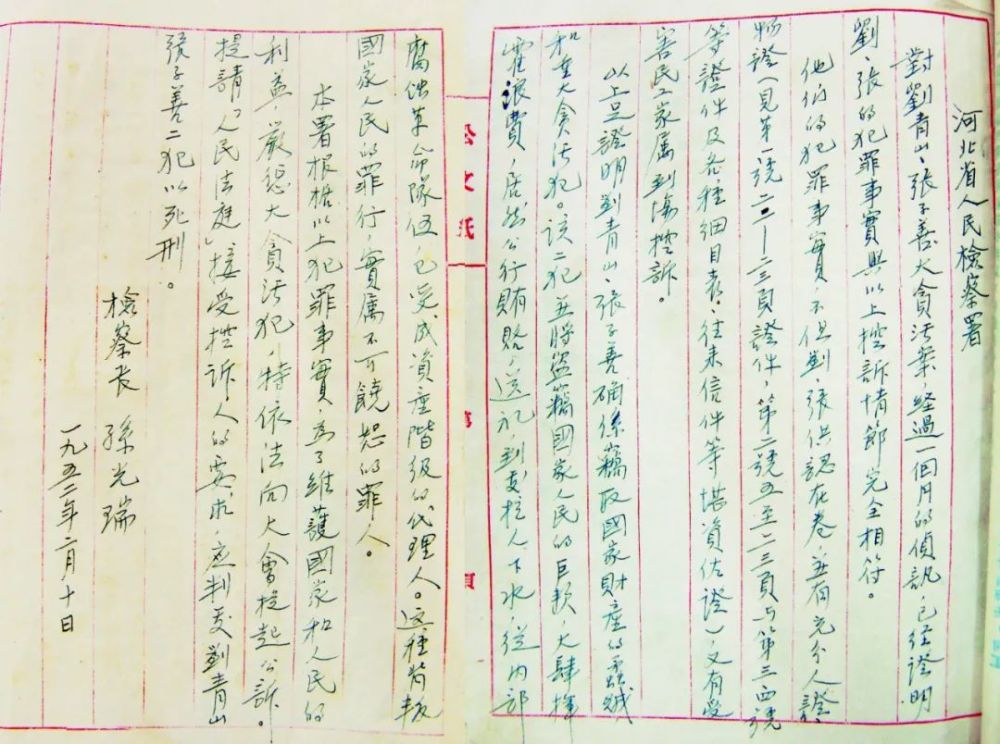 河北省人民檢察署
對劉青山、張子善大貪污案，經過一個月的偵訊，已經證明
劉、張的犯罪事實與以上控訴情節完全相符。
他们的犯罪事實，不但劉、張供認在卷，並有充分人證、
物證（見第一號二—二三頁證件，第二號五至二三頁与第三四號
等證件及各種細目表、往来信件等堪資佐證），又有受
害民工家属到場控訴。
以上足證明劉青山、張子善确係竊取國家財產的蟊賊
和重大貪污犯。该二犯並將盜竊國家人民的巨款，大肆揮
霍浪費，居然公行賄賂，送礼，到处拉人下水，從内部
公文紙 第 頁
腐蝕革命隊伍，已变成資產階级的代理人。这種背叛
國家人民的罪行，實属不可饒恕的罪人。
本署根據以上犯罪事實，為了維護國家和人民的
利益，嚴惩大貪污犯，特依法向大會提起公訴。
提請「人民法庭」接受控訴人的要求，应判处劉青山
張子善二犯以死刑。
檢察长 孫光瑞
一九五二年二月十日